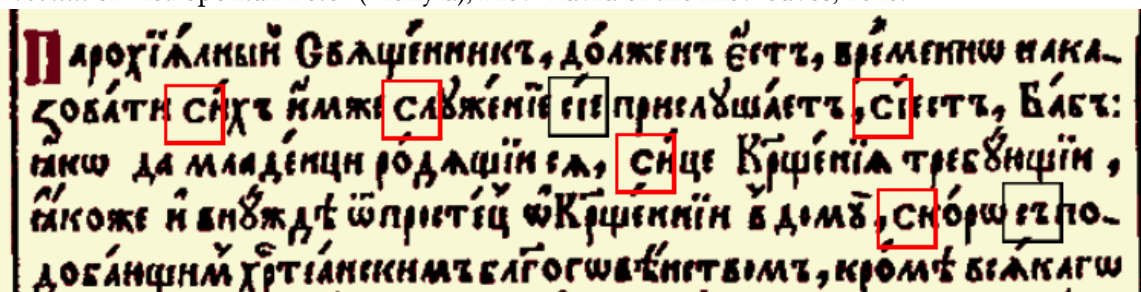 Парохїѧ́лный Свѧще́нникъ, до́лженъ є҆́стъ, вре́меннѡ нака-
ꙁова́ти си́хъ и҆́мже слꙋже́нїе сїе прислꙋша́етъ ,сїестъ, Ба́бъ:
ꙗ҆́кѡ да младе́нци ро́дѧщїи сѧ, си́це Кр҃ще́нїѧ требꙋ́ющїи ,
ꙗ҆́коже и҆ внꙋ́ждѣ ѡ҆Кр҃ще́нїи в̾домꙋ̀ ,ско́рѡ съпо-
доба́ющим̾ хр҃тїа́нскимъ бл҃гогѡвѣ́нствомъ, кро́мѣ всѧ́кагѡ